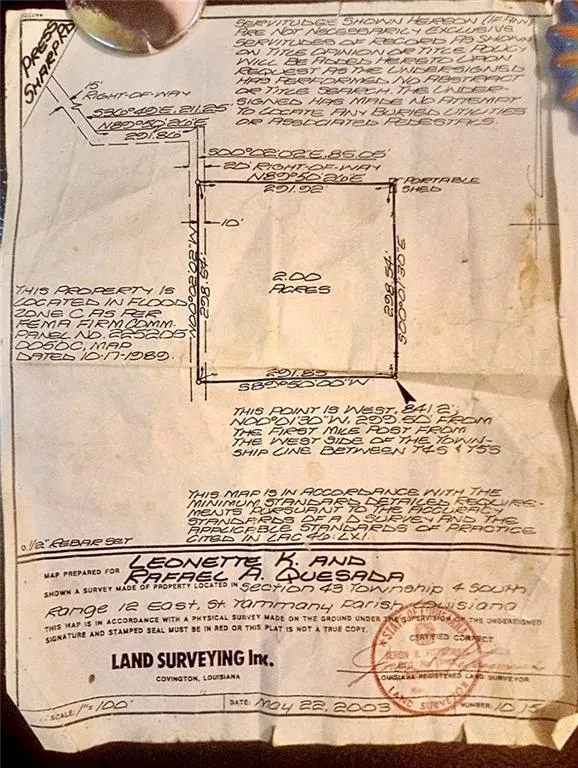 SERVITUDES SHOWN HEREON (IF ANY)
ARE NOT NECESSARILY EXCLUSIVE
SERVITUDES OF RECORD AS SHOWN
ON TITLE OPINION OR TITLE POLICY
WILL BE ADDED HERETO UPON
REQUEST AS THE UNDERSIGNED
HAS PERFORMED NO ABSTRACT
OR TITLE SEARCH. THE UNDER-
SIGNED HAS MADE NO ATTEMPT
TO LOCATE ANY BURIED UTILITIES
OR ASSOCIATED PEDESTALS.
PRESS
SHARP RD.
15'
RIGHT-OF-WAY
S36°49'E, 21.25'
N89°50'26"E
291.86'
S00°02'02"E, 85.05'
20' RIGHT-OF-WAY
N89°50'26"E
291.92'
PORTABLE
SHED
10'
N00°02'02"W
298.54'
2.00
ACRES
298.54'
S00°01'30"E
THIS PROPERTY IS
LOCATED IN FLOOD
ZONE C AS PER
FEMA FIRM COMM.
PANEL NO. 225205
0050C, MAP
DATED 10-17-1989.
291.85
S89°50'00"W
THIS POINT IS WEST, 841.2';
N00°01'30"W, 299.60' FROM
THE FIRST MILE POST FROM
THE WEST SIDE OF THE TOWN-
SHIP LINE BETWEEN T4S & T5S
THIS MAP IS IN ACCORDANCE WITH THE
MINIMUM STANDARD DETAILED REQUIRE-
MENTS PURSUANT TO THE ACCURACY
STANDARDS OF A D SURVEY AND THE
APPLICABLE STANDARDS OF PRACTICE
CITED IN LAC 46: LXI.
o 1/2" REBAR SET
MAP PREPARED FOR LEONETTE K. AND
RAFAEL A. QUESADA
SHOWN A SURVEY MADE OF PROPERTY LOCATED IN Section 43 Township 4 South
Range 12 East, St. Tammany Parish, Louisiana
THIS MAP IS IN ACCORDANCE WITH A PHYSICAL SURVEY MADE ON THE GROUND UNDER THE SUPERVISION OF THE UNDERSIGNED
SIGNATURE AND STAMPED SEAL MUST BE IN RED OR THIS PLAT IS NOT A TRUE COPY.
CERTIFIED CORRECT
LAND SURVEYING Inc.
COVINGTON, LOUISIANA
LOUISIANA REGISTERED LAND SURVEYOR
LAND SURVEYOR
SCALE: 1"= 100'
DATE: May 22, 2003
NUMBER: